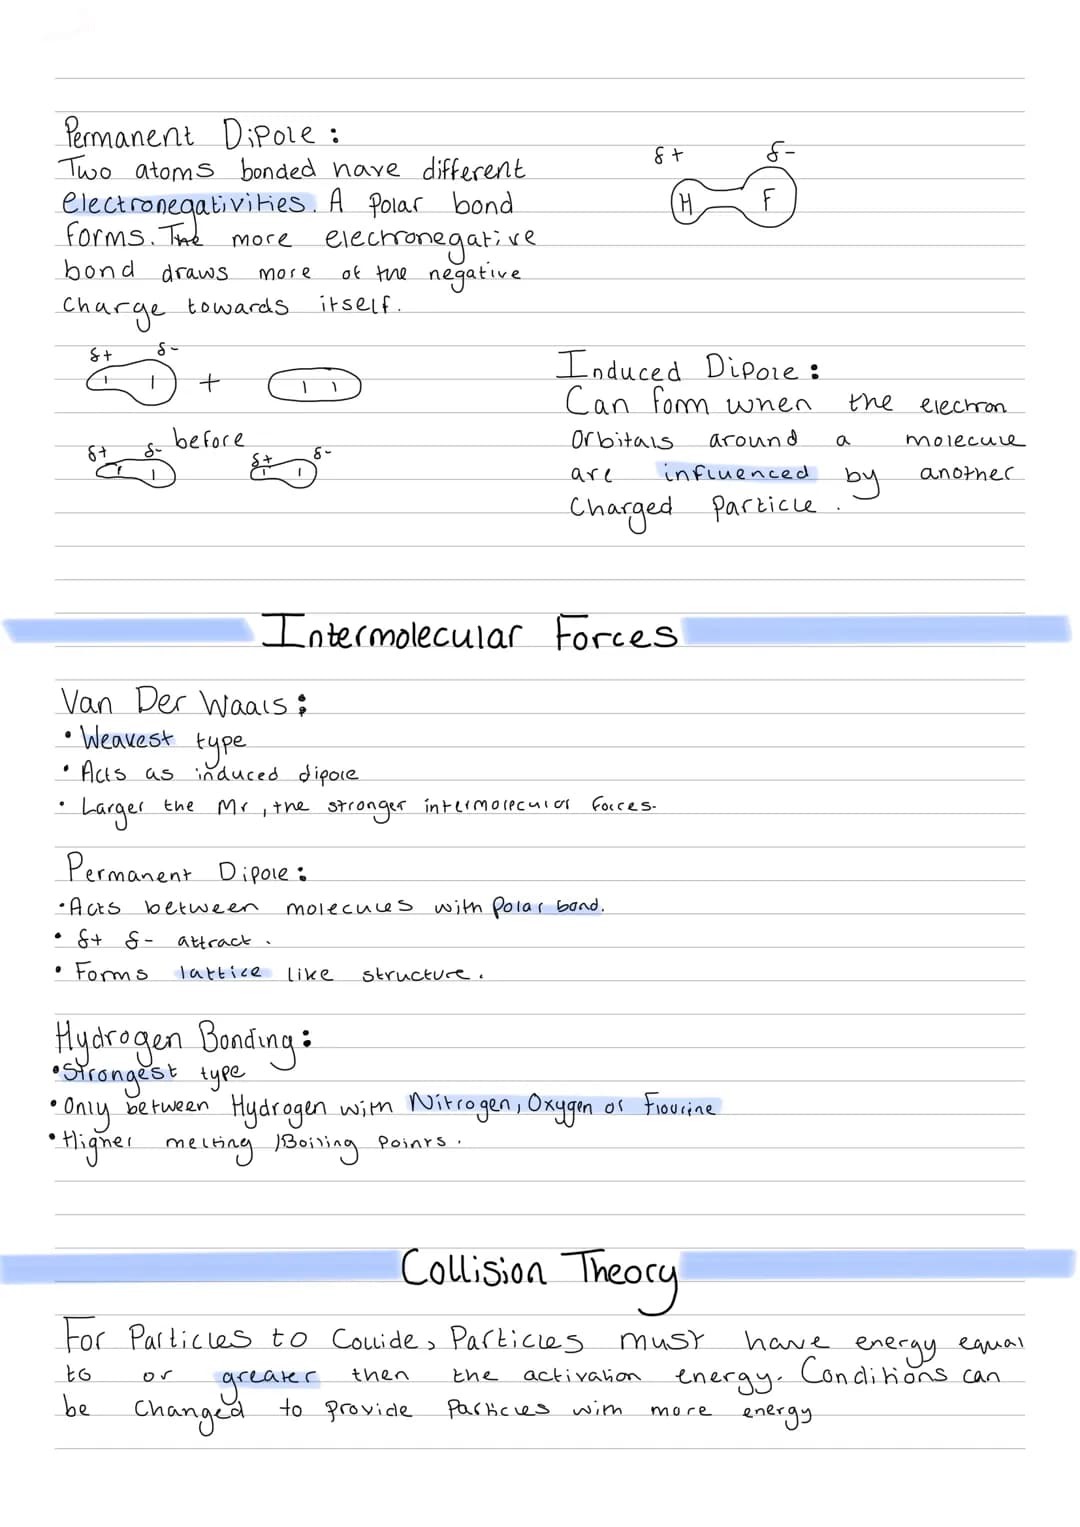 Permanent Dipole:
Two atoms bonded have different
electronegativities. A polar bond
forms. The more electronegative
bond draws more of the negative
charge towards itself.
δ+ δ-
H F
δ+ δ-
+
before
δ+ δ- δ+ δ-
Induced Dipole:
Can form when the electron
orbitals around a molecule
are influenced by another
charged particle.
Intermolecular Forces
Van Der Waals:
• Weakest type
• Acts as induced dipole
• Larger the Mr, the stronger intermolecular forces.
Permanent Dipole:
• Acts between molecules with polar bond.
• δ+ δ- attract.
• Forms lattice like structure.
Hydrogen Bonding:
• Strongest type
• Only between Hydrogen with Nitrogen, Oxygen or Flourine
• Higher melting /Boiling Points.
Collision Theory
For Particles to Collide, Particles must have energy equal
to or greater then the activation energy. Conditions can
be Changed to provide Particles with more energy